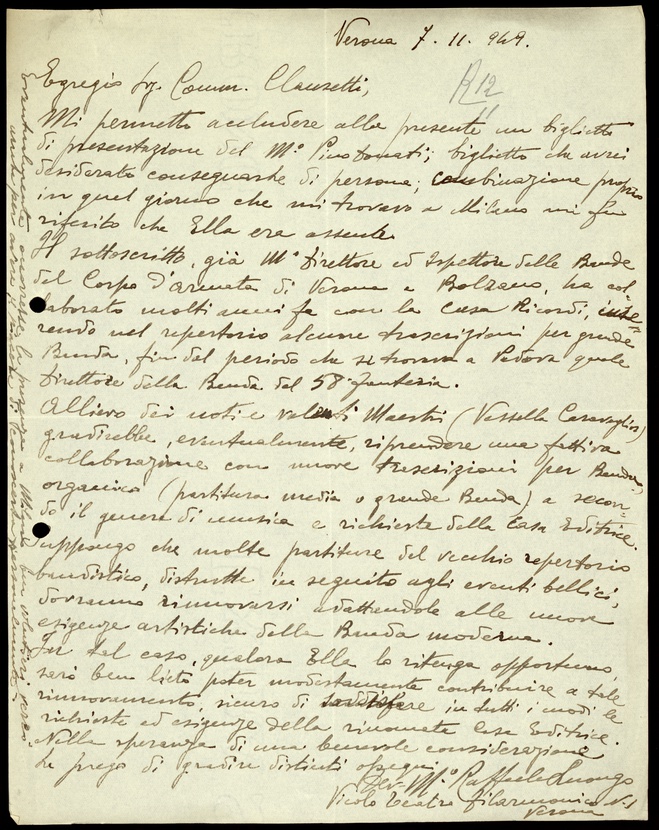 Verona 7. 11. 949.
R 12
11
Egregio Sig. Comm. Clausetti,
Mi permetto accludere alla presente un biglietto
di presentazione del M° Pino Donati; biglietto che avrei
desiderato consegnarle di persona; combinazione proprio
in quel giorno che mi trovavo a Milano mi fu
riferito che Ella era assente.
Il sottoscritto, già M° Direttore ed Ispettore delle Bande
del Corpo d'Armata di Verona e Bolzano, ha col
laborato molti anni fa con la casa Ricordi, inse=
rendo nel repertorio alcune trascrizioni per grande
Banda, fin dal periodo che si trovava a Padova quale
Direttore della Banda del 58° fanteria.
Allievo dei noti e valenti Maestri (Vessella Caravaglios)
gradirebbe, eventualmente, riprendere una fattiva
collaborazione con nuove trascrizioni per Banda,
organico (partitura media o grande Banda) a secon=
do il genere di musica e richiesta della Casa Editrice.
Suppongo che molte partiture del vecchio repertorio
bandistico, distrutte in seguito agli eventi bellici,
dovranno rinnovarsi adattendole alle nuove
esigenze artistiche della Banda moderna.
In tal caso, qualora Ella lo ritenga opportuno,
sarò ben lieto poter modestamente contribuire a tale
rinnovamento, sicuro di soddisfare in tutti i modi le
richieste ed esigenze della rinomata Casa Editrice.
Nella speranza di una benevole considerazione
La prego di gradire distinti ossequi
Dev. M° Raffaele Luongo
Vicolo Teatro filarmonico N. 1
Verona
Eventualmente occorresse la presenza a Milano ben volentieri verrò
anche per avere il piacere di conoscerla personalmente.